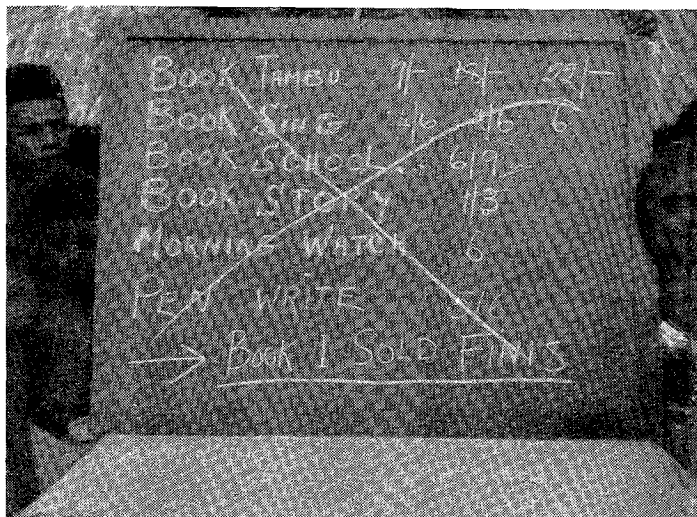 BOOK TAMBU 7/- 15/- 22/-
BOOK SING 2/6 4/6 6
BOOK SCHOOL.. 6/9
BOOK STORY 1/3
MORNING WATCH 6
PEN WRITE 5/6
→ BOOK I SOLD FINIS